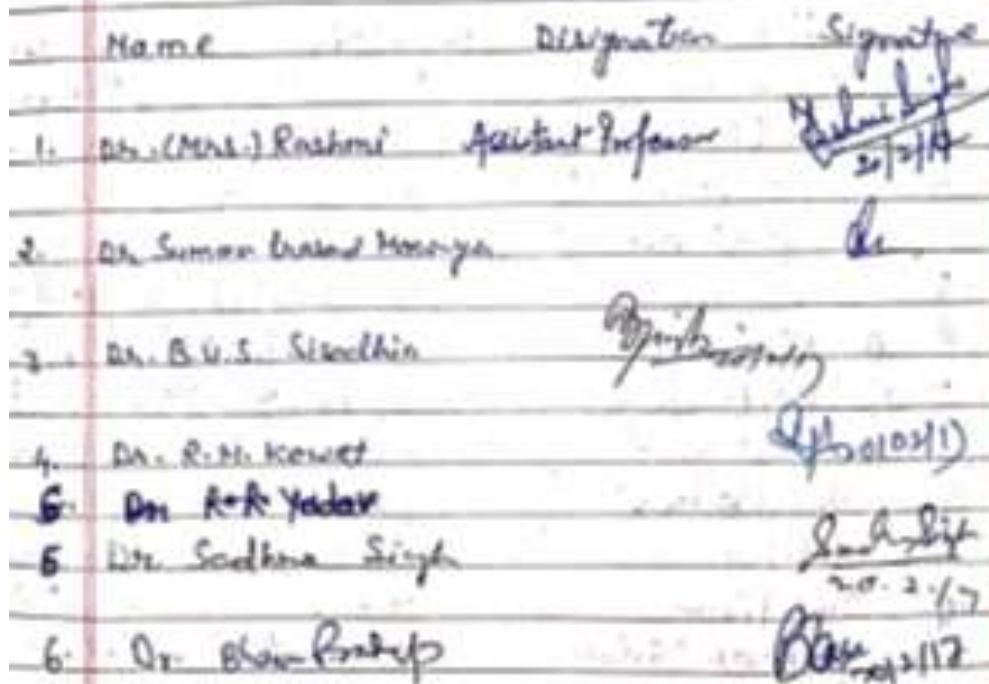 Name Designation Signature
1. Dr. (Mrs.) Rashmi Assistant Professor
20/2/17
2. Dr Suman Prasad Mourya
3. Dr. B.U.S. Sisodhia
4. Dr. R.M. Kewet
5. Dr. R.R. Yadav
6 Dr. Sadhna Singh
20.2.17
6. Dr. Bhim Pratap
20/2/17